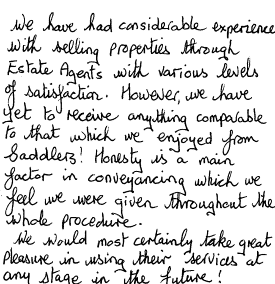 We have had considerable experience
with selling properties through
Estate Agents with various levels
of satisfaction. However, we have
yet to receive anything comparable
to that which we enjoyed from
Saddlers! Honesty is a main
factor in conveyancing which we
feel we were given throughout the
whole procedure.
We would most certainly take great
pleasure in using their services at
any stage in the future!